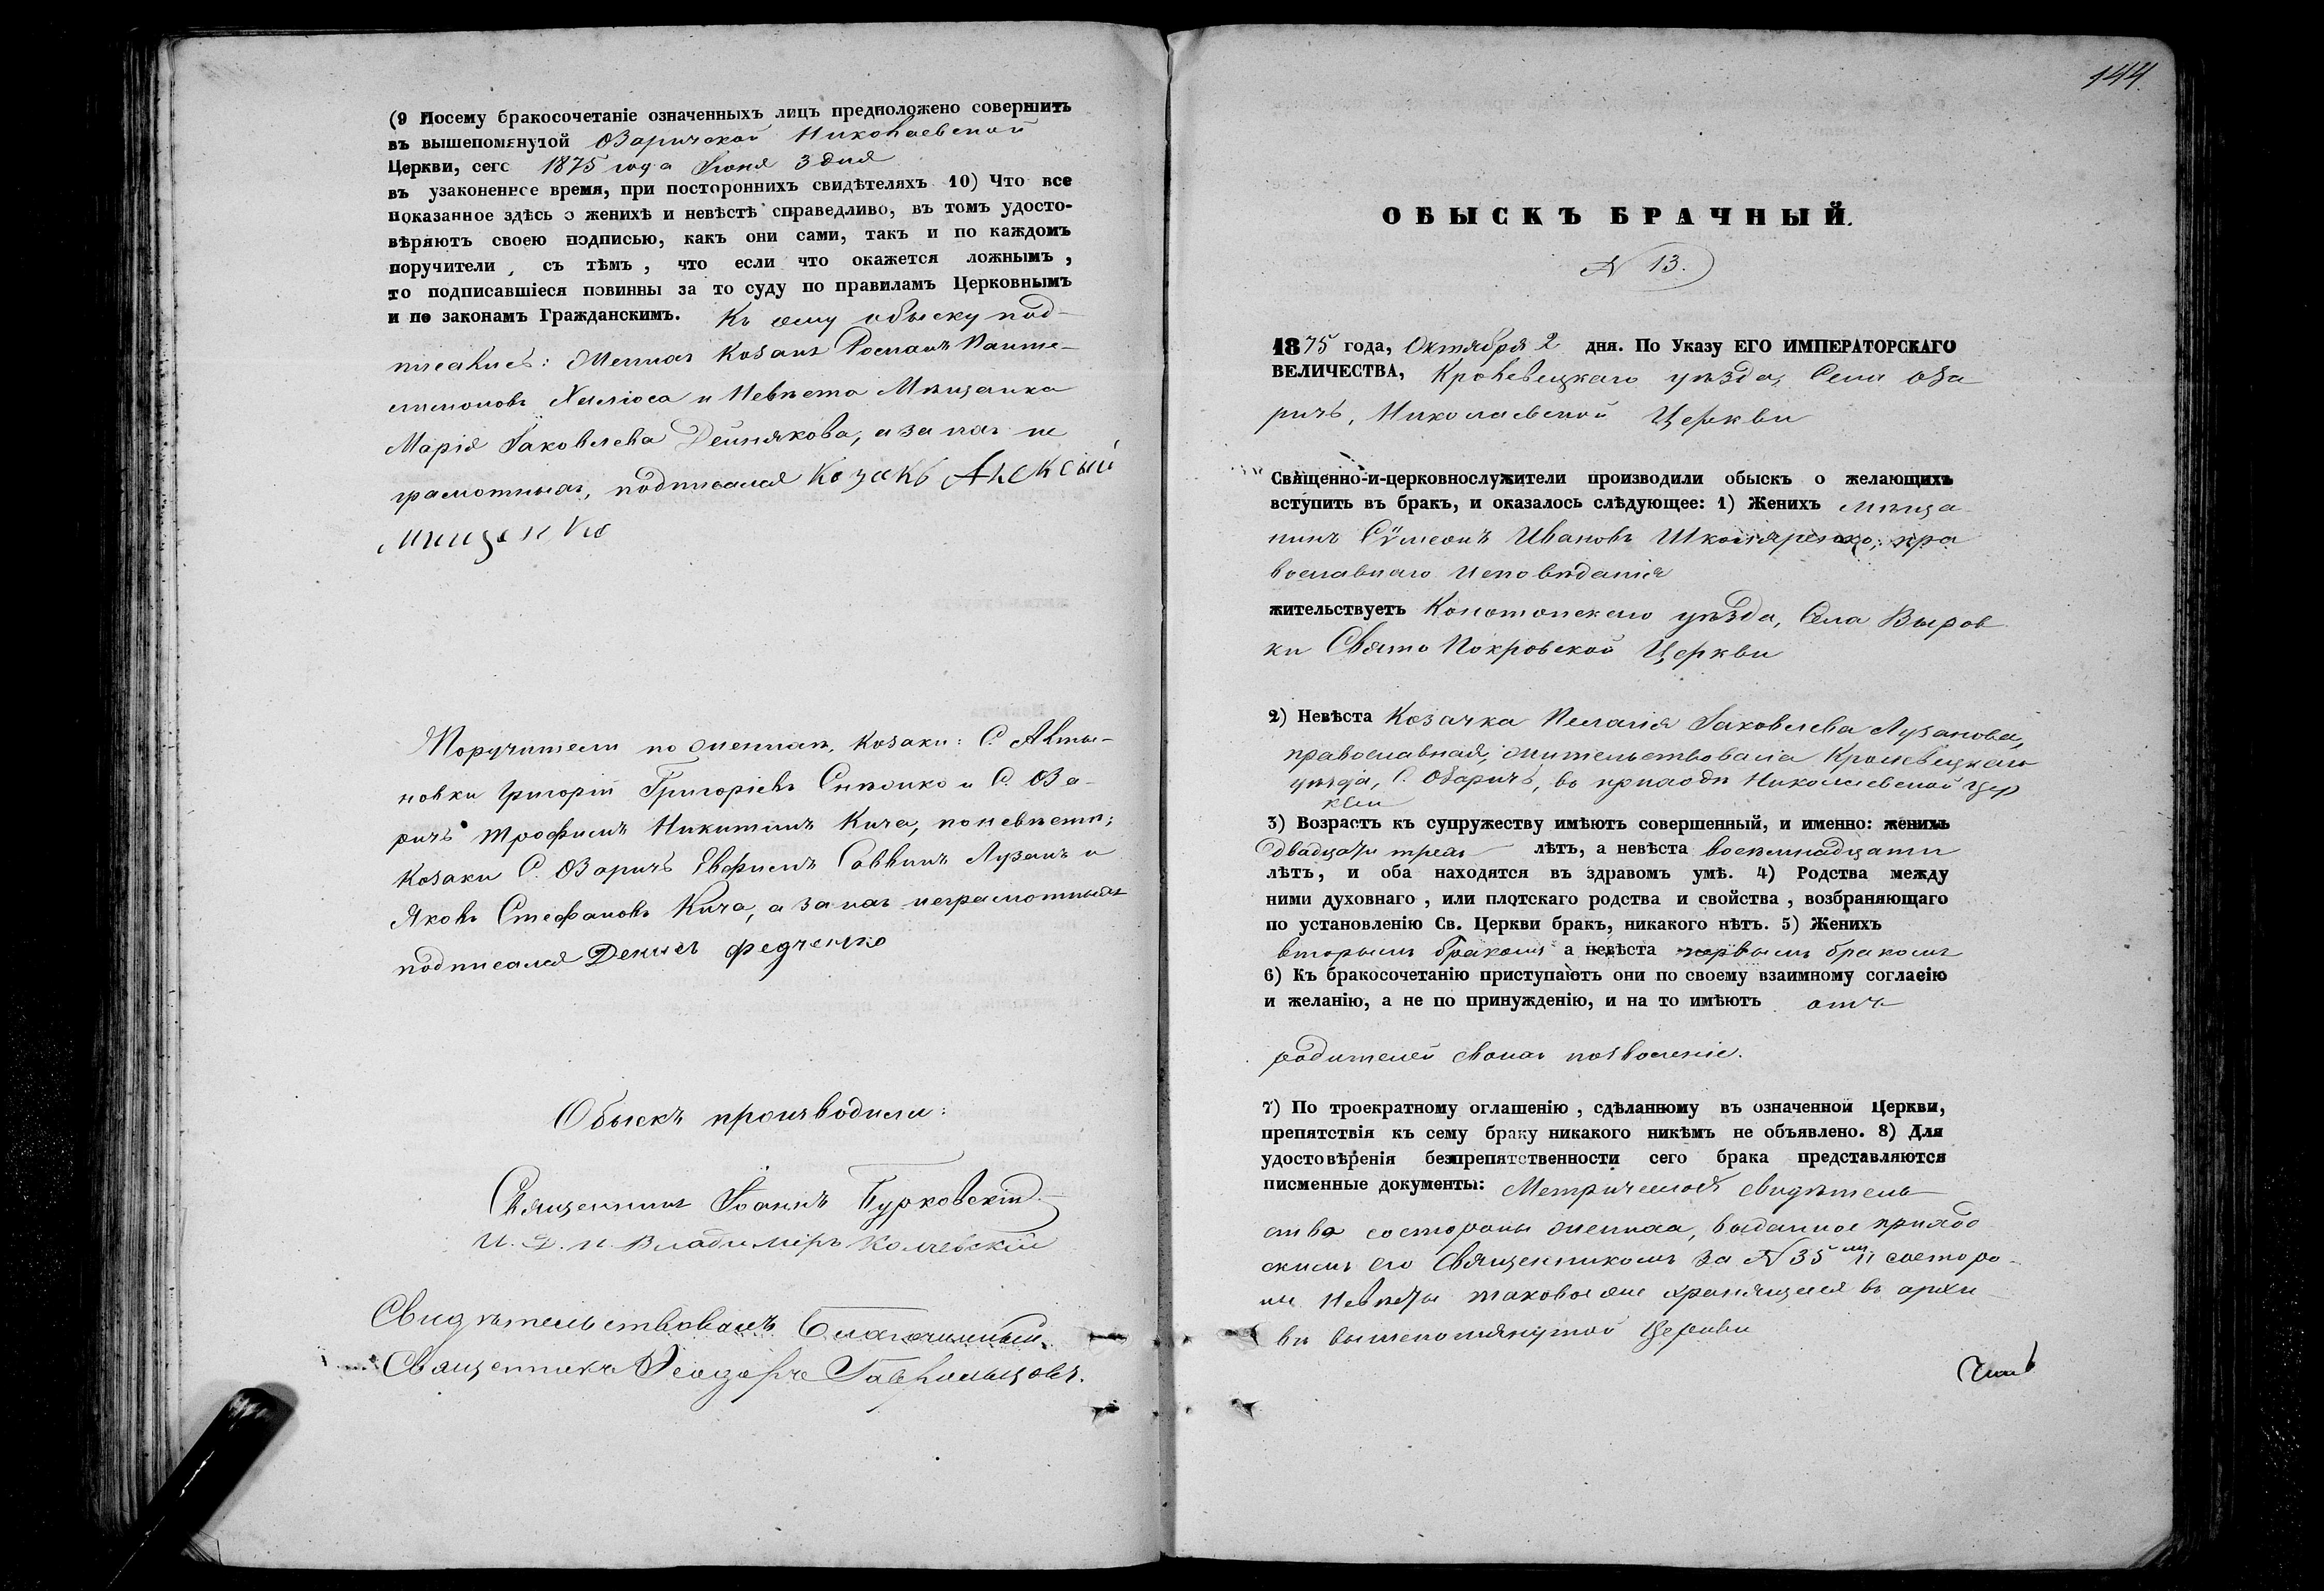 (9 Посему бракосочетаніе означенныхъ лицъ предположено совершить
въ вышепомянутой Озаричской Николаевской
Церкви, сего 1875 года Іюня 3 дня
въ узаконенное время, при постороннихъ свидѣтеляхъ 10) Что все
показанное здѣсь о женихѣ и невѣстѣ справедливо, въ томъ удосто-
вѣряютъ своею подписью, какъ они сами, такъ и по каждомъ
поручители, съ тѣмъ, что если что окажется ложнымъ,
то подписавшіеся повинны за то суду по правиламъ Церковнымъ
и по законамъ Гражданскимъ. Къ сему обыску под-
писались: Женихъ Козакъ Романъ Панте-
лимоновъ и Невѣста Мѣщанка
Марія Іаковлева Дейнякова, а за нихъ не
грамотныхъ, подписался Козакъ Алексѣй
Мищенко
Поручители по женихѣ, Козаки: С. Алты-
новки Григорій Григоріевъ и С. Оза-
ричъ Трофимъ Никитинъ Кича, по невѣстѣ;
Козаки С. Озаричъ Евфимъ Саввинъ Лузанъ и
Яковъ Стефановъ Кича, а за нихъ неграмотныхъ
подписался Денисъ Федченко
Обыскъ производили:
Священникъ Іоаннъ Бурковскій
И. Д. П. Владиміръ
Свидѣтельствовалъ Благочинный
Священникъ Ѳеодоръ
144.
ОБЫСКЪ БРАЧНЫЙ.
N 13.
1875 года, Октября 2 дня. По Указу ЕГО ИМПЕРАТОРСКАГО
ВЕЛИЧЕСТВА, Кролевецкаго уѣзда, Села Оза
ричъ, Николаевской Церкви
Священно-и-церковнослужители производили обыскъ о желающихъ
вступить въ бракъ, и оказалось слѣдующее: 1) Женихъ мѣща
нинъ Сѵмеонъ Ивановъ Школяренко, пра
вославнаго исповѣданія
жительствуетъ Конотопскаго уѣзда, Села Выров
ки Свято Покровской Церкви
2) Невѣста Козачка Пелагія Іаковлева Лузанова,
православная, жительствовала Кролевецкаго
уѣзда, С. Озаричъ, въ приходѣ Николаевской Цер
кви
3) Возрастъ къ супружеству имѣютъ совершенный, и именно: женихъ
двадцати трехъ лѣтъ, а невѣста восемнадцати
лѣтъ, и оба находятся въ здравомъ умѣ. 4) Родства между
ними духовнаго, или плотскаго родства и свойства, возбраняющаго
по установленію Св. Церкви бракъ, никакого нѣтъ. 5) Женихъ
вторымъ бракомъ а невѣста первымъ бракомъ
6) Къ бракосочетанію приступаютъ они по своему взаимному согласію
и желанію, а не по принужденію, и на то имѣютъ отъ
родителей своихъ позволеніе.
7) По троекратному оглашенію, сдѣланному въ означенной Церкви,
препятствія къ сему браку никакого никѣмъ не объявлено. 8) Для
удостовѣренія безпрепятственности сего брака представляются
писменные документы: Метрическое свидѣтель
ство состороны жениха, выданное приход
скимъ его Священникомъ за N 35 и состоро-
ны Невѣсты таковое же хранящееся въ архи
вѣ вышепомянутой Церкви